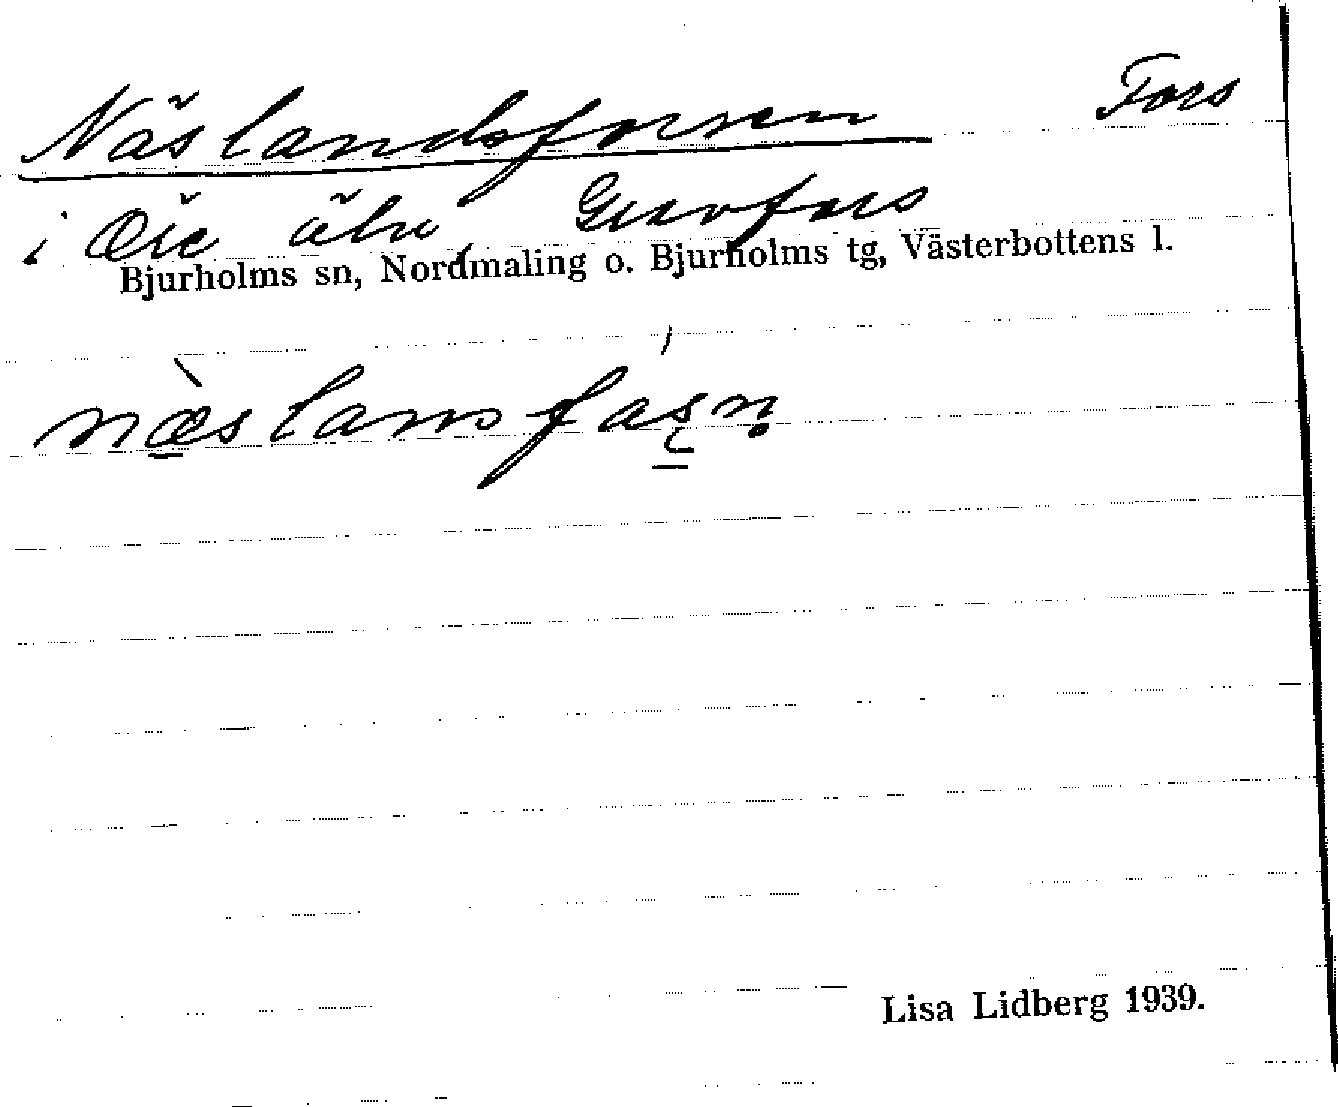 Näslandsforsen Fors
i Öre älv, Gravfors
Bjurholms sn, Nordmaling o. Bjurholms tg, Västerbottens l.
næ̀slansfás̠n̥
Lisa Lidberg 1939.